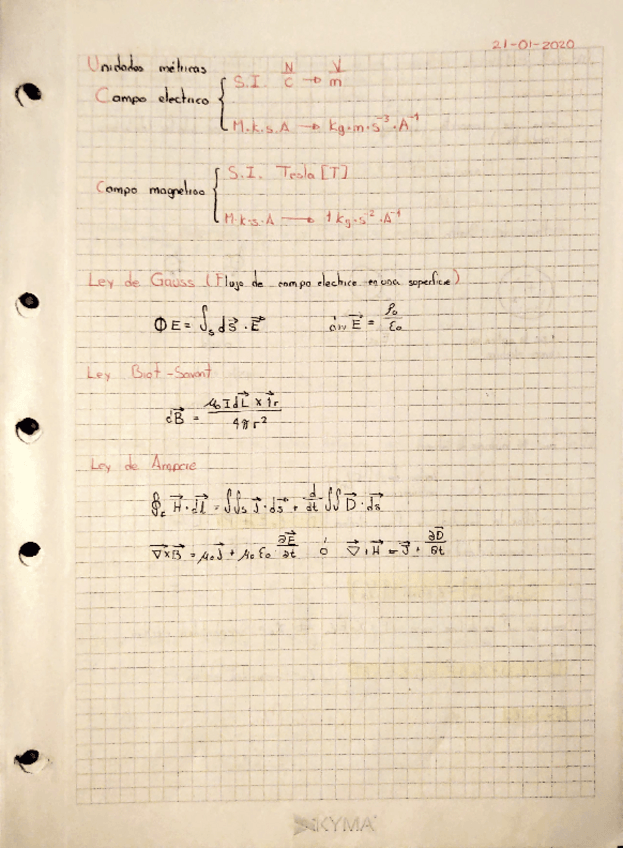 21-01-2020
Unidades métricas
Campo electrico { S.I. N/C → V/m
M.k.s.A → kg·m·s⁻³·A⁻¹
Campo magnetico { S.I. Tesla [T]
M.k.s.A → 1 kg·s⁻²·A⁻¹
Ley de Gauss (Flujo de campo electrico en una superficie)
ΦE = ∫ₛ d𝑆⃗ · E⃗ div E⃗ = ρ₀/ε₀
Ley Biot-Savart
dB⃗ = μ₀ I dL⃗ × 1⃗r / 4πr²
Ley de Ampere
∮c H⃗ · dl⃗ = ∫∫ₛ J⃗ · ds⃗ + d/dt ∫∫ D⃗ · ds⃗
∇⃗×B⃗ = μ₀J⃗ + μ₀ε₀ ∂E⃗/∂t ó ∇⃗ × H⃗ = J⃗ + ∂D⃗/∂t
KYMA